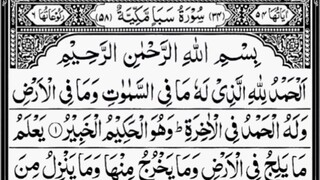 اٰیَاتُهَا ٥٤ (٣٤) سُوْرَةُ سَبَاٍ مَكِّیَّةٌ (٥٨) رُكُوْعَاتُهَا ٦
بِسْمِ اللّٰهِ الرَّحْمٰنِ الرَّحِیْمِ
اَلْحَمْدُ لِلّٰهِ الَّذِیْ لَهٗ مَا فِی السَّمٰوٰتِ وَمَا فِی الْاَرْضِ
وَلَهُ الْحَمْدُ فِی الْاٰخِرَةِ ؕ وَهُوَ الْحَكِیْمُ الْخَبِیْرُ ۝١ یَعْلَمُ
مَا یَلِجُ فِی الْاَرْضِ وَمَا یَخْرُجُ مِنْهَا وَمَا یَنْزِلُ مِنَ